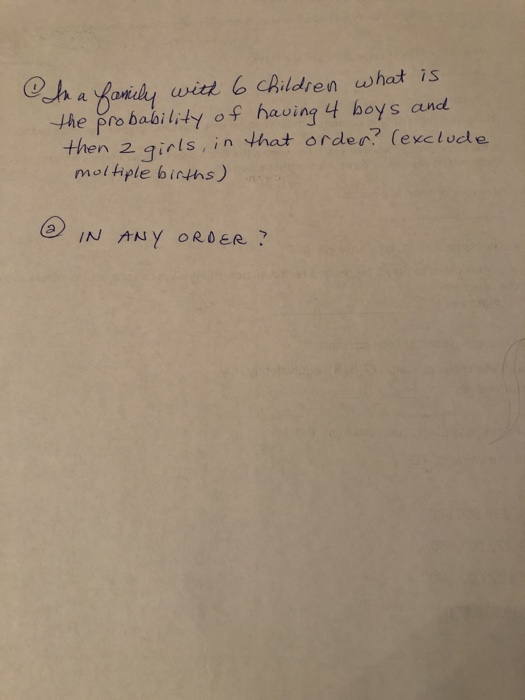 ① In a family with 6 children what is
the probability of having 4 boys and
then 2 girls, in that order? (exclude
moltiple births)
② IN ANY ORDER?